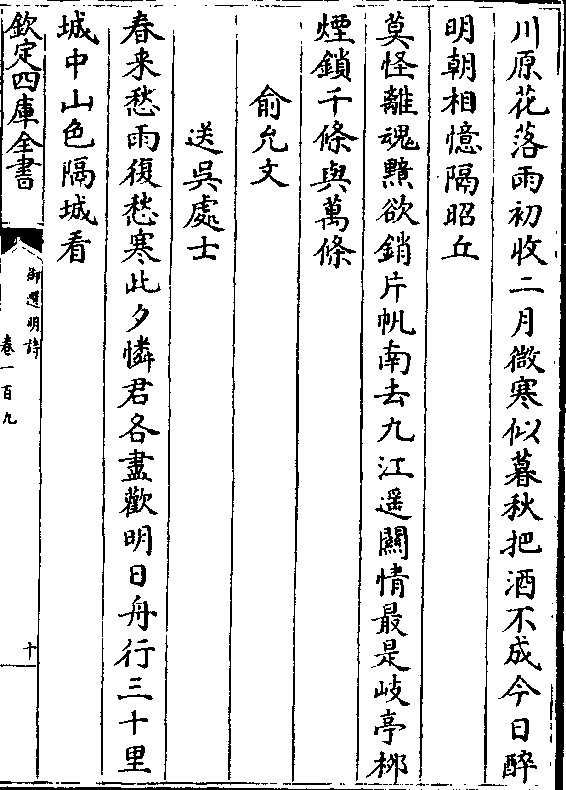 川原花落雨初收二月微寒似暮秋把酒不成今日醉
明朝相憶隔昭丘
莫怪離魂黯欲銷片帆南去九江遥關情最是岐亭栁
煙鎖千條與萬條
俞允文
送吳處士
春来愁雨復愁寒此夕憐君各盡歡明日舟行三十里
城中山色隔城看
欽定四庫全書
御選明詩
卷一百九
十